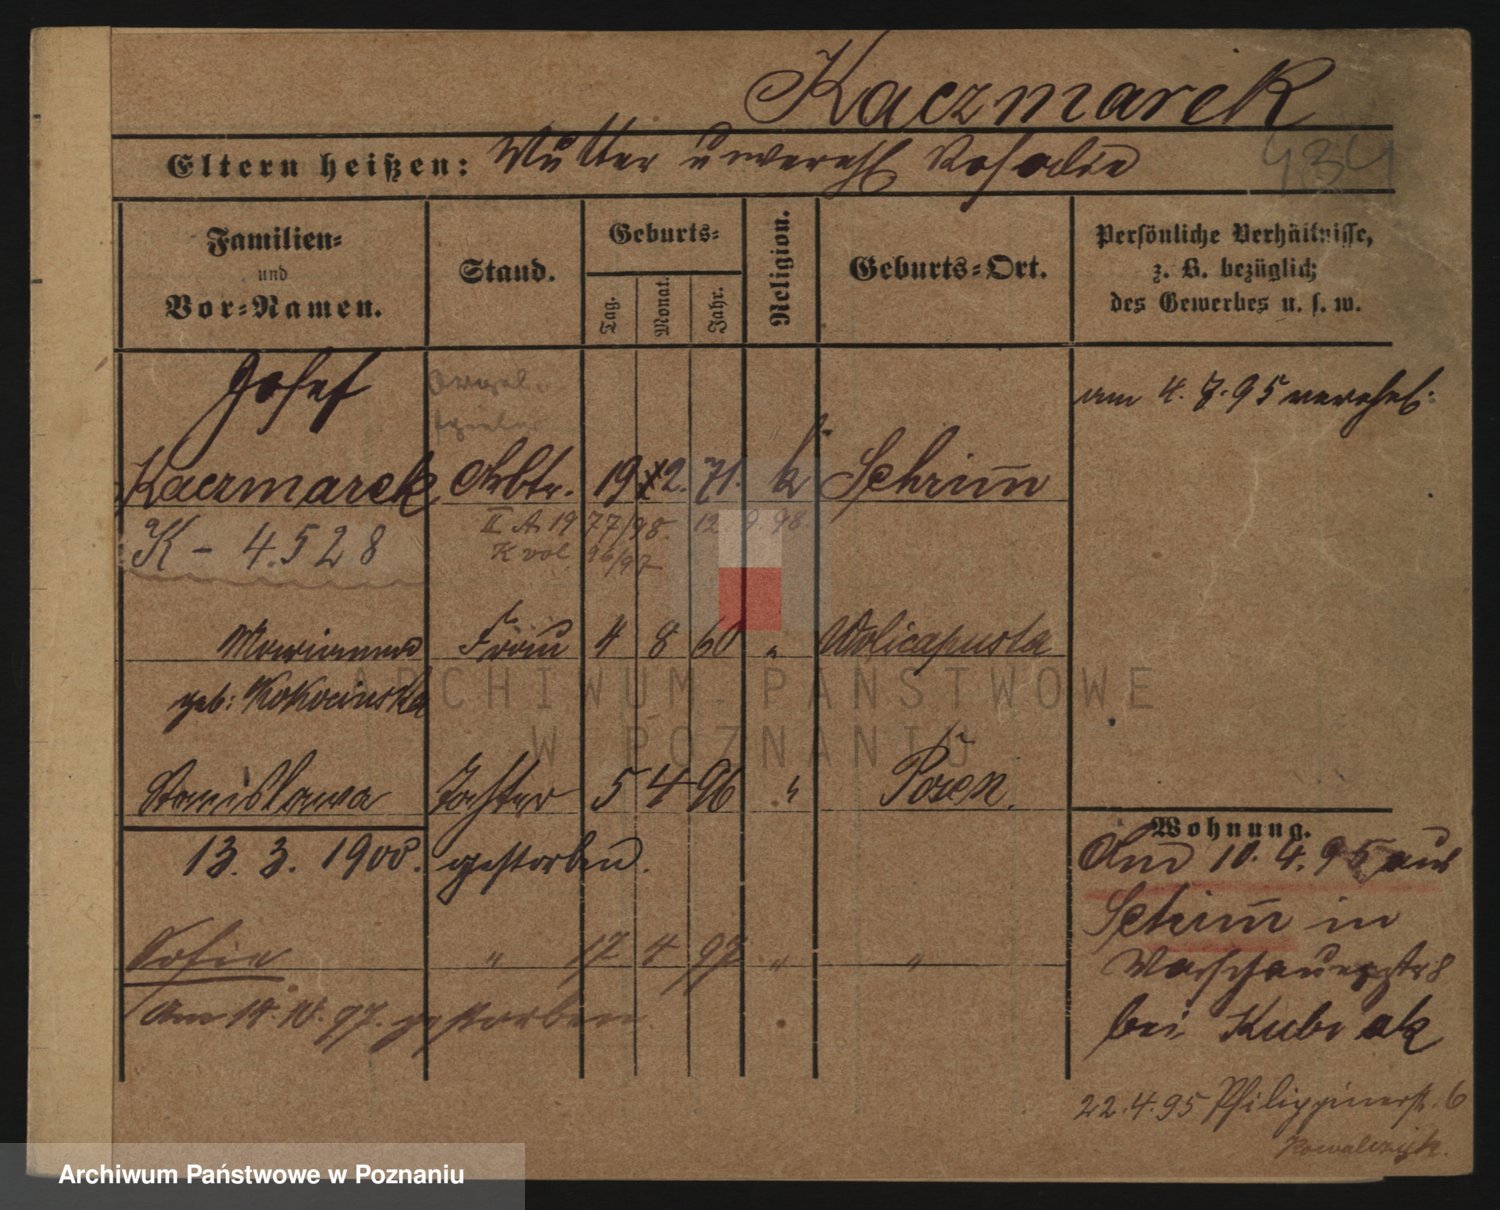 Kaczmarek
Eltern heißen: Mutter unvereh. Rosalie
434
Familien=
und
Vor=Namen.
Stand.
Geburts=
Tag.
Monat.
Jahr.
Religion.
Geburts=Ort.
Persönliche Verhältnisse,
z. B. bezüglich
des Gewerbes u. s. w.
Josef
Kaczmarek Arbtr. 19 12. 71. k Schrim̅
am 4. 7. 95 verehel.
K - 4.528
II A 19 77/98. 12 9 98.
K vol. 26/97
Marianna Frau 4 8 60 " Wolicapusta
geb: Kokocinska
Stanislawa Tochter 5 4 96 " Posen.
13. 3. 1900. gestorben.
Sofie " 17 4 97 " "
Am 18. 10. 97. gestorben.
Wohnung.
Am 10. 4. 95 aus
Schrim̅ in
Warschauerstr 8
bei Kubiak
22.4.95 Philippinerst. 6
Kowalczyk.
ARCHIWUM PAŃSTWOWE
W POZNANIU
Archiwum Państwowe w Poznaniu